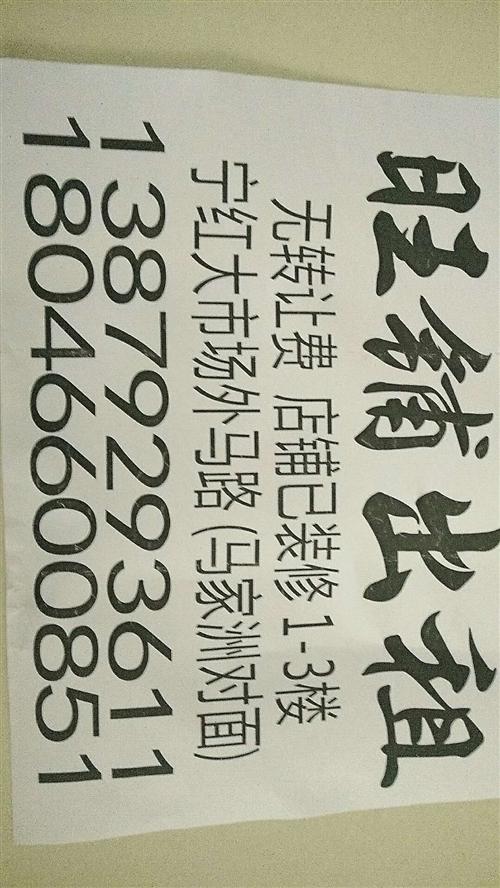 旺铺出租
无转让费 店铺已装修1-3楼
宁红大市场外马路(马家洲对面)
13879293611
18046600851